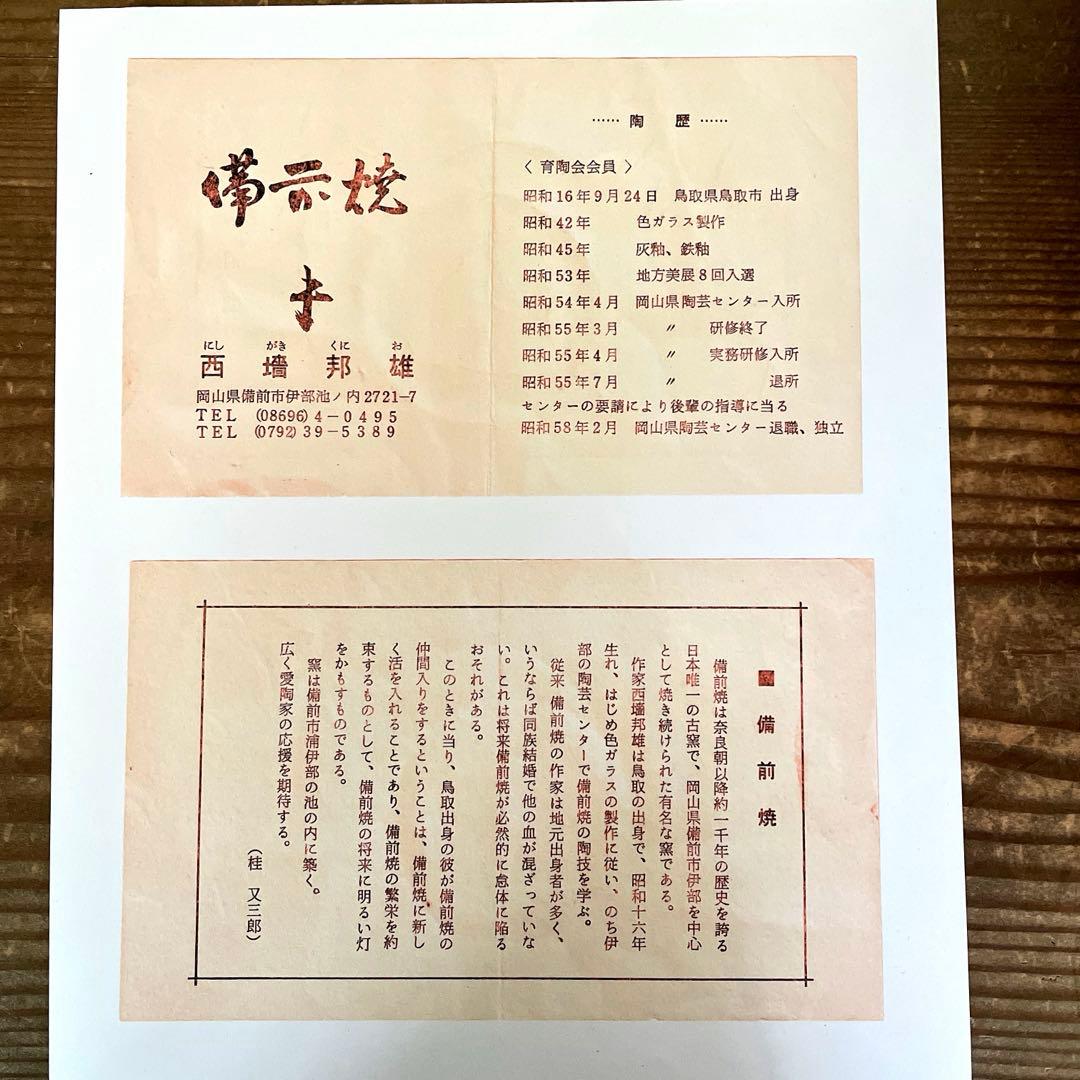 備前焼
にし がき くに お
西墻邦雄
岡山県備前市伊部池ノ内2721-7
TEL (08696)4-0495
TEL (0792)39-5389
……陶 歴……
〈育陶会会員〉
昭和16年9月24日 鳥取県鳥取市 出身
昭和42年 色ガラス製作
昭和45年 灰釉、鉄釉
昭和53年 地方美展8回入選
昭和54年4月 岡山県陶芸センター入所
昭和55年3月 〃 研修終了
昭和55年4月 〃 実務研修入所
昭和55年7月 〃 退所
センターの要請により後輩の指導に当る
昭和58年2月 岡山県陶芸センター退職、独立
■備前焼
備前焼は奈良朝以降約一千年の歴史を誇る
日本唯一の古窯で、岡山県備前市伊部を中心
として焼き続けられた有名な窯である。
作家西墻邦雄は鳥取の出身で、昭和十六年
生れ、はじめ色ガラスの製作に従い、のち伊
部の陶芸センターで備前焼の陶技を学ぶ。
従来 備前焼の作家は地元出身者が多く、
いうならば同族結婚で他の血が混ざっていな
い。これは将来備前焼が必然的に怠体に陥る
おそれがある。
このときに当り、鳥取出身の彼が備前焼の
仲間入りをするということは、備前焼に新し
く活を入れることであり、備前焼の繁栄を約
束するものとして、備前焼の将来に明るい灯
をかもすものである。
窯は備前市浦伊部の池の内に築く。
広く愛陶家の応援を期待する。
（桂 又三郎）